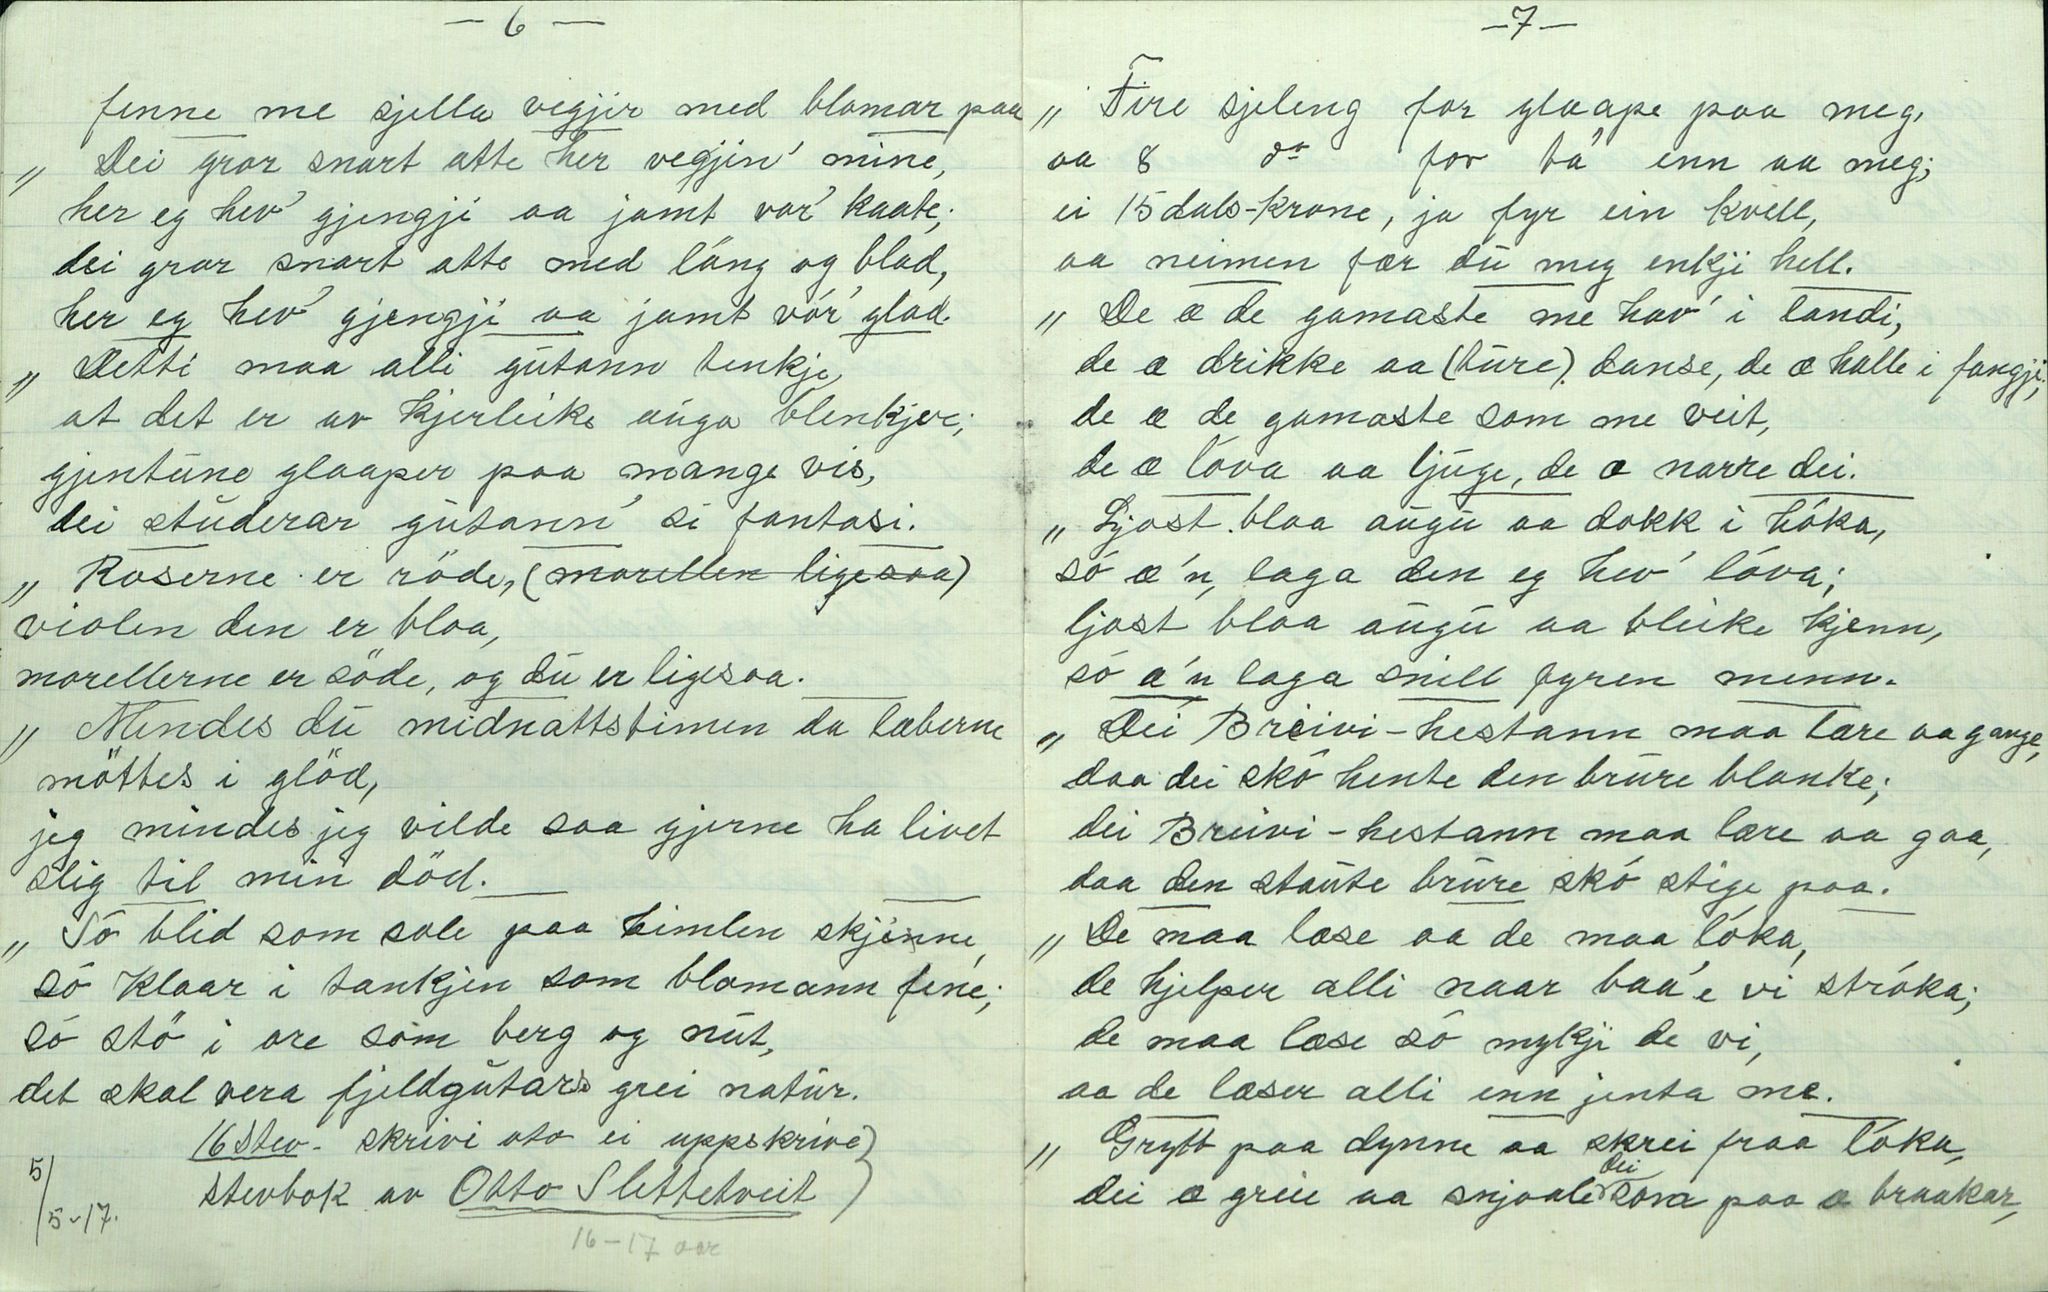 — 6 —
finne me sjella vegjir med blomar paa
„ Dei gror snart atte her vegjin' mine,
her eg hev' gjengji aa jamt vor' kaate;
dei gror snart atte med lång og blad,
her eg hev' gjengji aa jamt vór' glad.
„ Detti maa alli gutann tenkje,
at det er av kjerleike auga blenkjer;
gjentune glaaper paa mange vis,
dei studerar gutann' si fantasi.
„ Roserne er röde, (morellen ligesaa)
violen den er blaa,
morellerne er söde, og du er ligesaa.
„ Mindes du midnattstimen da læberne
möttes i glöd,
jeg mindes jeg vilde saa gjerne ha livet
slig til min död.
„ Só blid som sole paa himlen skjinne,
só klaar i tankjen som blomann fine;
só stö i ore som berg og nut,
det skal vera fjeldgutars grei natur.
16 Stev - skrivi oto ei uppskrive)
stevbok av Otto Slettetveit )
5/5-17.
16-17 aar
— 7 —
„ Fire sjeleng for glaape paa meg,
aa 8 do for ta' enn aa meg;
ei 15 dals-krone, ja fyr ein kvell,
aa neimen fær du meg enkji hell.
„ De æ de gamaste me hav' i landi,
de æ drikke aa (ture). danse, de æ halle i fangji;
de æ de gamaste som me veit,
de æ lóva aa ljuge, de æ narre dei.
„ Ljost. blaa augu aa dokk i hóka,
só æ'n, laga den eg hev' lóva;
ljost blaa augu aa bleike kjenn,
só æ'n laga snill fyren menn.
„ Dei Breivi-hestann maa lære aa gange,
daa dei skó hente den brure blanke;
dei Breivi-hestann maa lære aa gaa,
daa den staute brure skó stige paa.
„ De maa læse aa de maa lóka,
de hjelper alli naar baa'e vi stróka;
de maa læse só mykji de vi,
aa de læser alli enn jenta mi.
„ Grytt paa dynne aa skrei fraa lóka,
dei æ greie aa snjoale dei sova paa æ braakar,